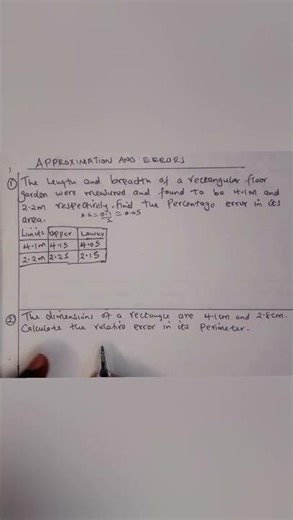 APPROXIMATION AND ERRORS
① The Length and breadth of a rectangular floor
garden were measured and found to be 4.1m and
2.2m respectively. Find the Percentage error in its
area. A.E = 0.1/2 = 0.05
Limits Upper Lower
4.1m 4.15 4.05
2.2m 2.25 2.15
② The dimensions of a rectangle are 4.1cm and 2.8cm.
Calculate the relative error in its Perimeter.